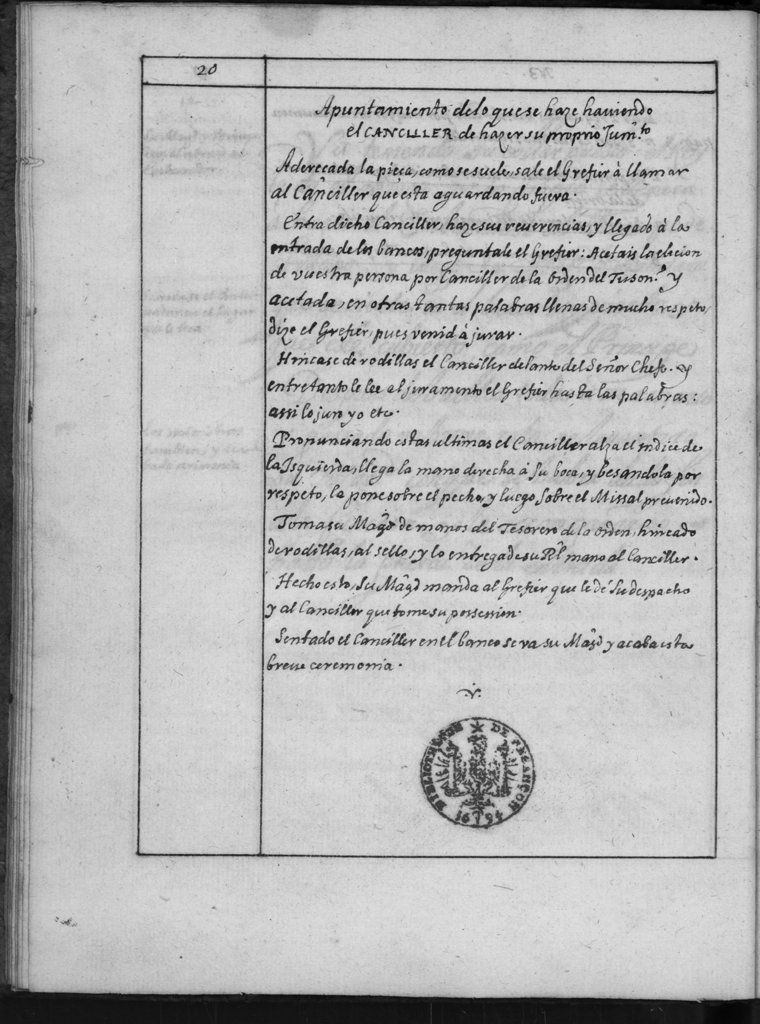 20
Apuntamiento de lo que se haze, haviendo
el CANCILLER de hazer su proprio Jum.to
Adereçada la pieça, como se suele, sale el Grefier à llamar
al Canciller que esta aguardando fuera.
Entra dicho Canciller, haze sus reuerencias, y llegado à la
entrada de los bancos, preguntale el Grefier: Acetais la elecion
de vuestra persona por Canciller de la Orden del Tuson? Y
acetada, en otras tantas palabras llenas de mucho respeto,
dize el Grefier, pues venid à jurar.
Hincase de rodillas el Canciller delante del Señor Chefe. Y
entretanto le lee al juramento el Grefier hasta las palabras:
assi lo juro yo etc.
Pronunciando estas ultimas el Canciller alza el indice de
la Isquierda, llega la mano derecha à su boca, y besandola por
respeto, la pone sobre el pecho, y luego sobre el Missal preuenido.
Toma su Mag.d de manos del Tesorero de la orden, hincado
de rodillas, al sello, y lo entrega de su R.l mano al Canciller.
Hecho esto, su Mag.d manda al Grefier que le dé su despacho
y al Canciller que tome su possession.
Sentado el Canciller en el banco se va su Mag.d y acaba esta
breue ceremonia.
BIBLIOTHEQUE DE BESANÇON
1694